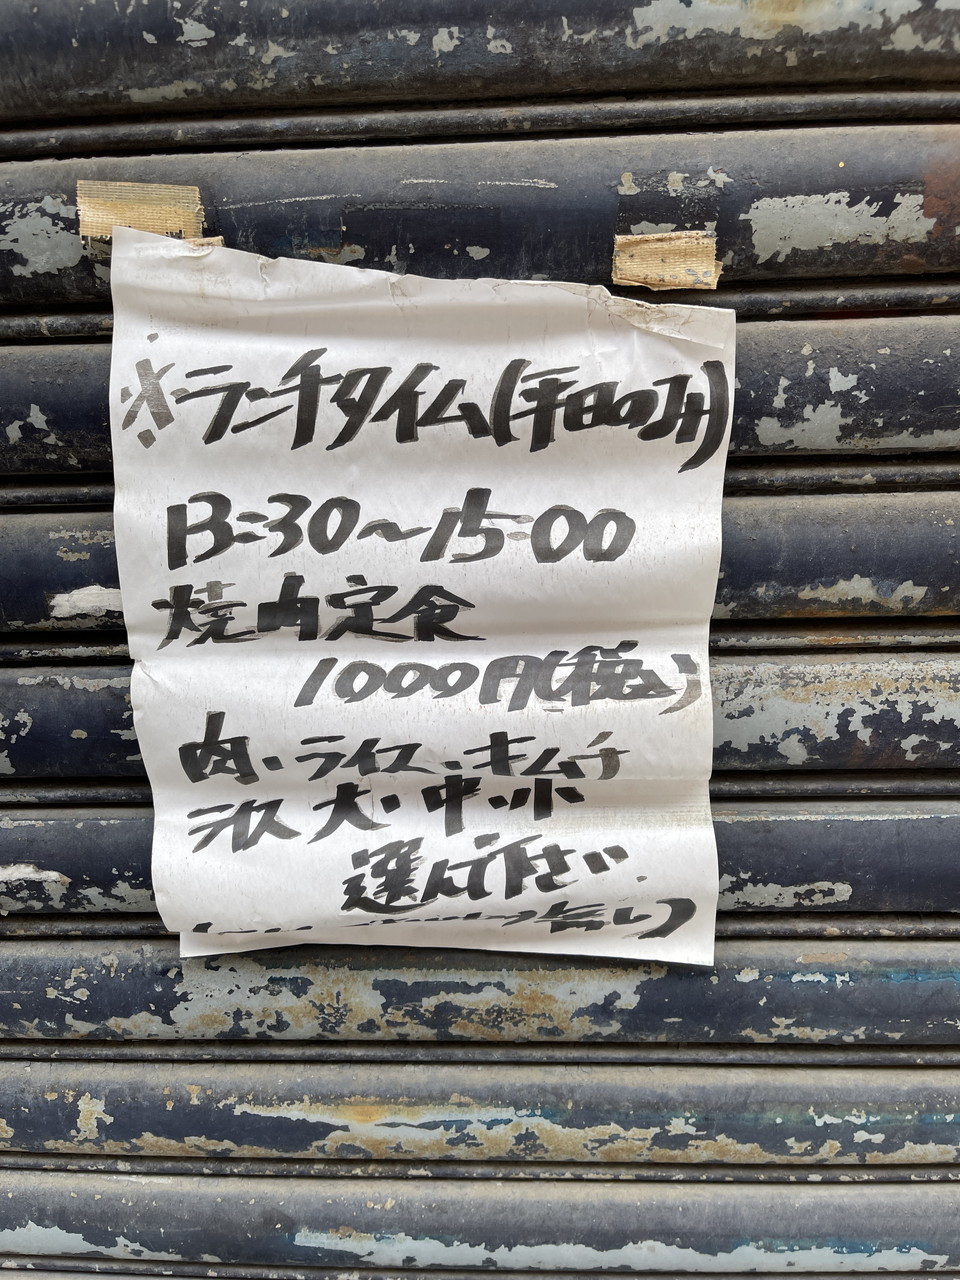 ※ランチタイム(平日のみ)
13:30～15:00
焼肉定食
1000円(税込)
肉、ライス、キムチ
ライス 大・中・小
選んで下さい
無し)